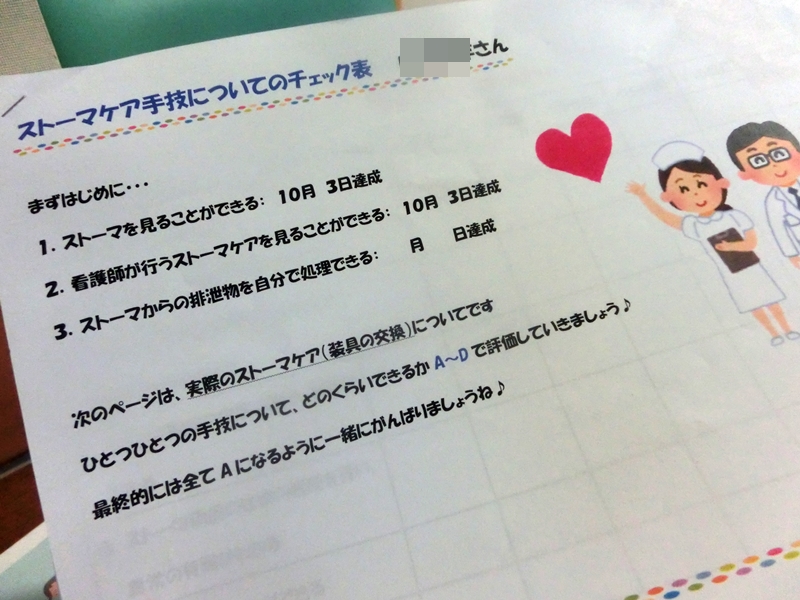 ストーマケア手技についてのチェック表 さん
まずはじめに・・・
1. ストーマを見ることができる: 10月 3日達成
2. 看護師が行うストーマケアを見ることができる: 10月 3日達成
3. ストーマからの排泄物を自分で処理できる: 月 日達成
次のページは、実際のストーマケア(装具の交換)についてです
ひとつひとつの手技について、どのくらいできるか A~D で評価していきましょう♪
最終的には全て A になるように一緒にがんばりましょうね♪